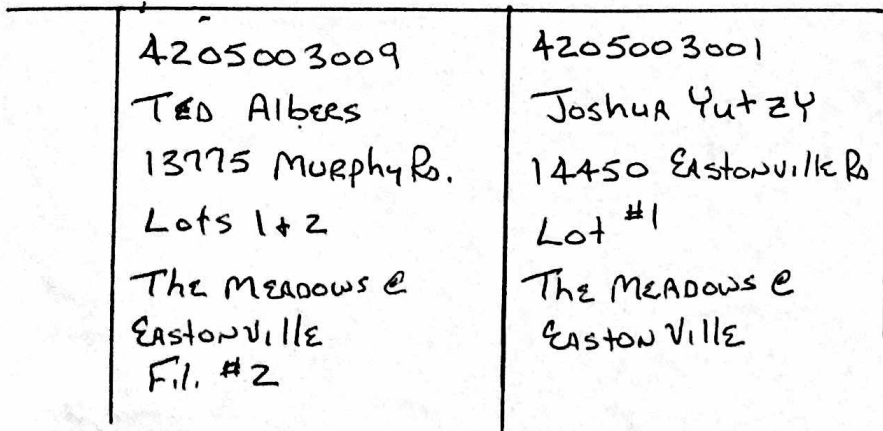 4205003009
TED Albers
13775 Murphy Rd.
Lots 1 + 2
The Meadows @
Eastonville
Fil. #2
4205003001
Joshua Yutzy
14450 Eastonville Rd
Lot #1
The Meadows @
Eastonville